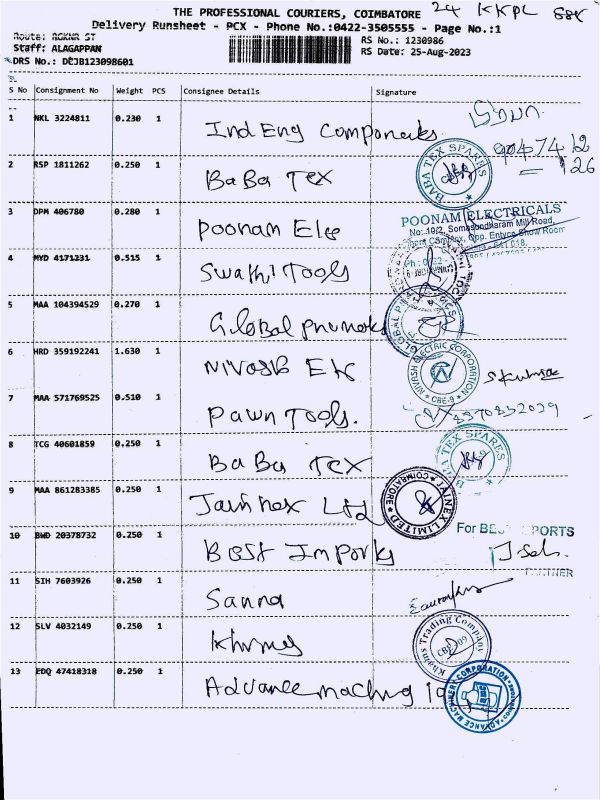 THE PROFESSIONAL COURIERS, COIMBATORE 24 KKPL
Delivery Runsheet - PCX - Phone No.:0422-3505555 - Page No.:1
Route: RGKNR ST
RS No.: 1230986
Staff: ALAGAPPAN
RS Date: 25-Aug-2023
DRS No.: DCJB123098601
S No Consignment No Weight PCS Consignee Details Signature
1 NKL 3224811 0.230 1 Ind Eng Components
2 RSP 1811262 0.250 1 BaBa Tex BABA TEX SPARES
3 DPM 406780 0.280 1 Poonam Ele POONAM ELECTRICALS
No: 19/2, Somasundharam Mill Road,
Opp. Entyce Show Room
4 MYD 4171231 0.515 1 Swathi Tools
5 MAA 104394529 0.270 1 Global pnumatks GLOBAL
6 HRD 359192241 1.630 1 Nivash Ele NIVASH ELECTRIC CORPORATION CBE-9
7 MAA 571769525 0.510 1 Pawn Tools.
8 TCG 40601859 0.250 1 BaBa Tex BABA TEX SPARES
9 MAA 861283385 0.250 1 Jainnex Ltd JAINEX LIMITED COIMBATORE
10 BWD 20378732 0.250 1 Best Imports For BEST IMPORTS
PARTNER
11 SIH 7603926 0.250 1 Sanna
12 SLV 4032149 0.250 1 Khimey Khems Trading Company
13 EDQ 47418318 0.250 1 Advance maching ADVANCE MACHINERY CORPORATION